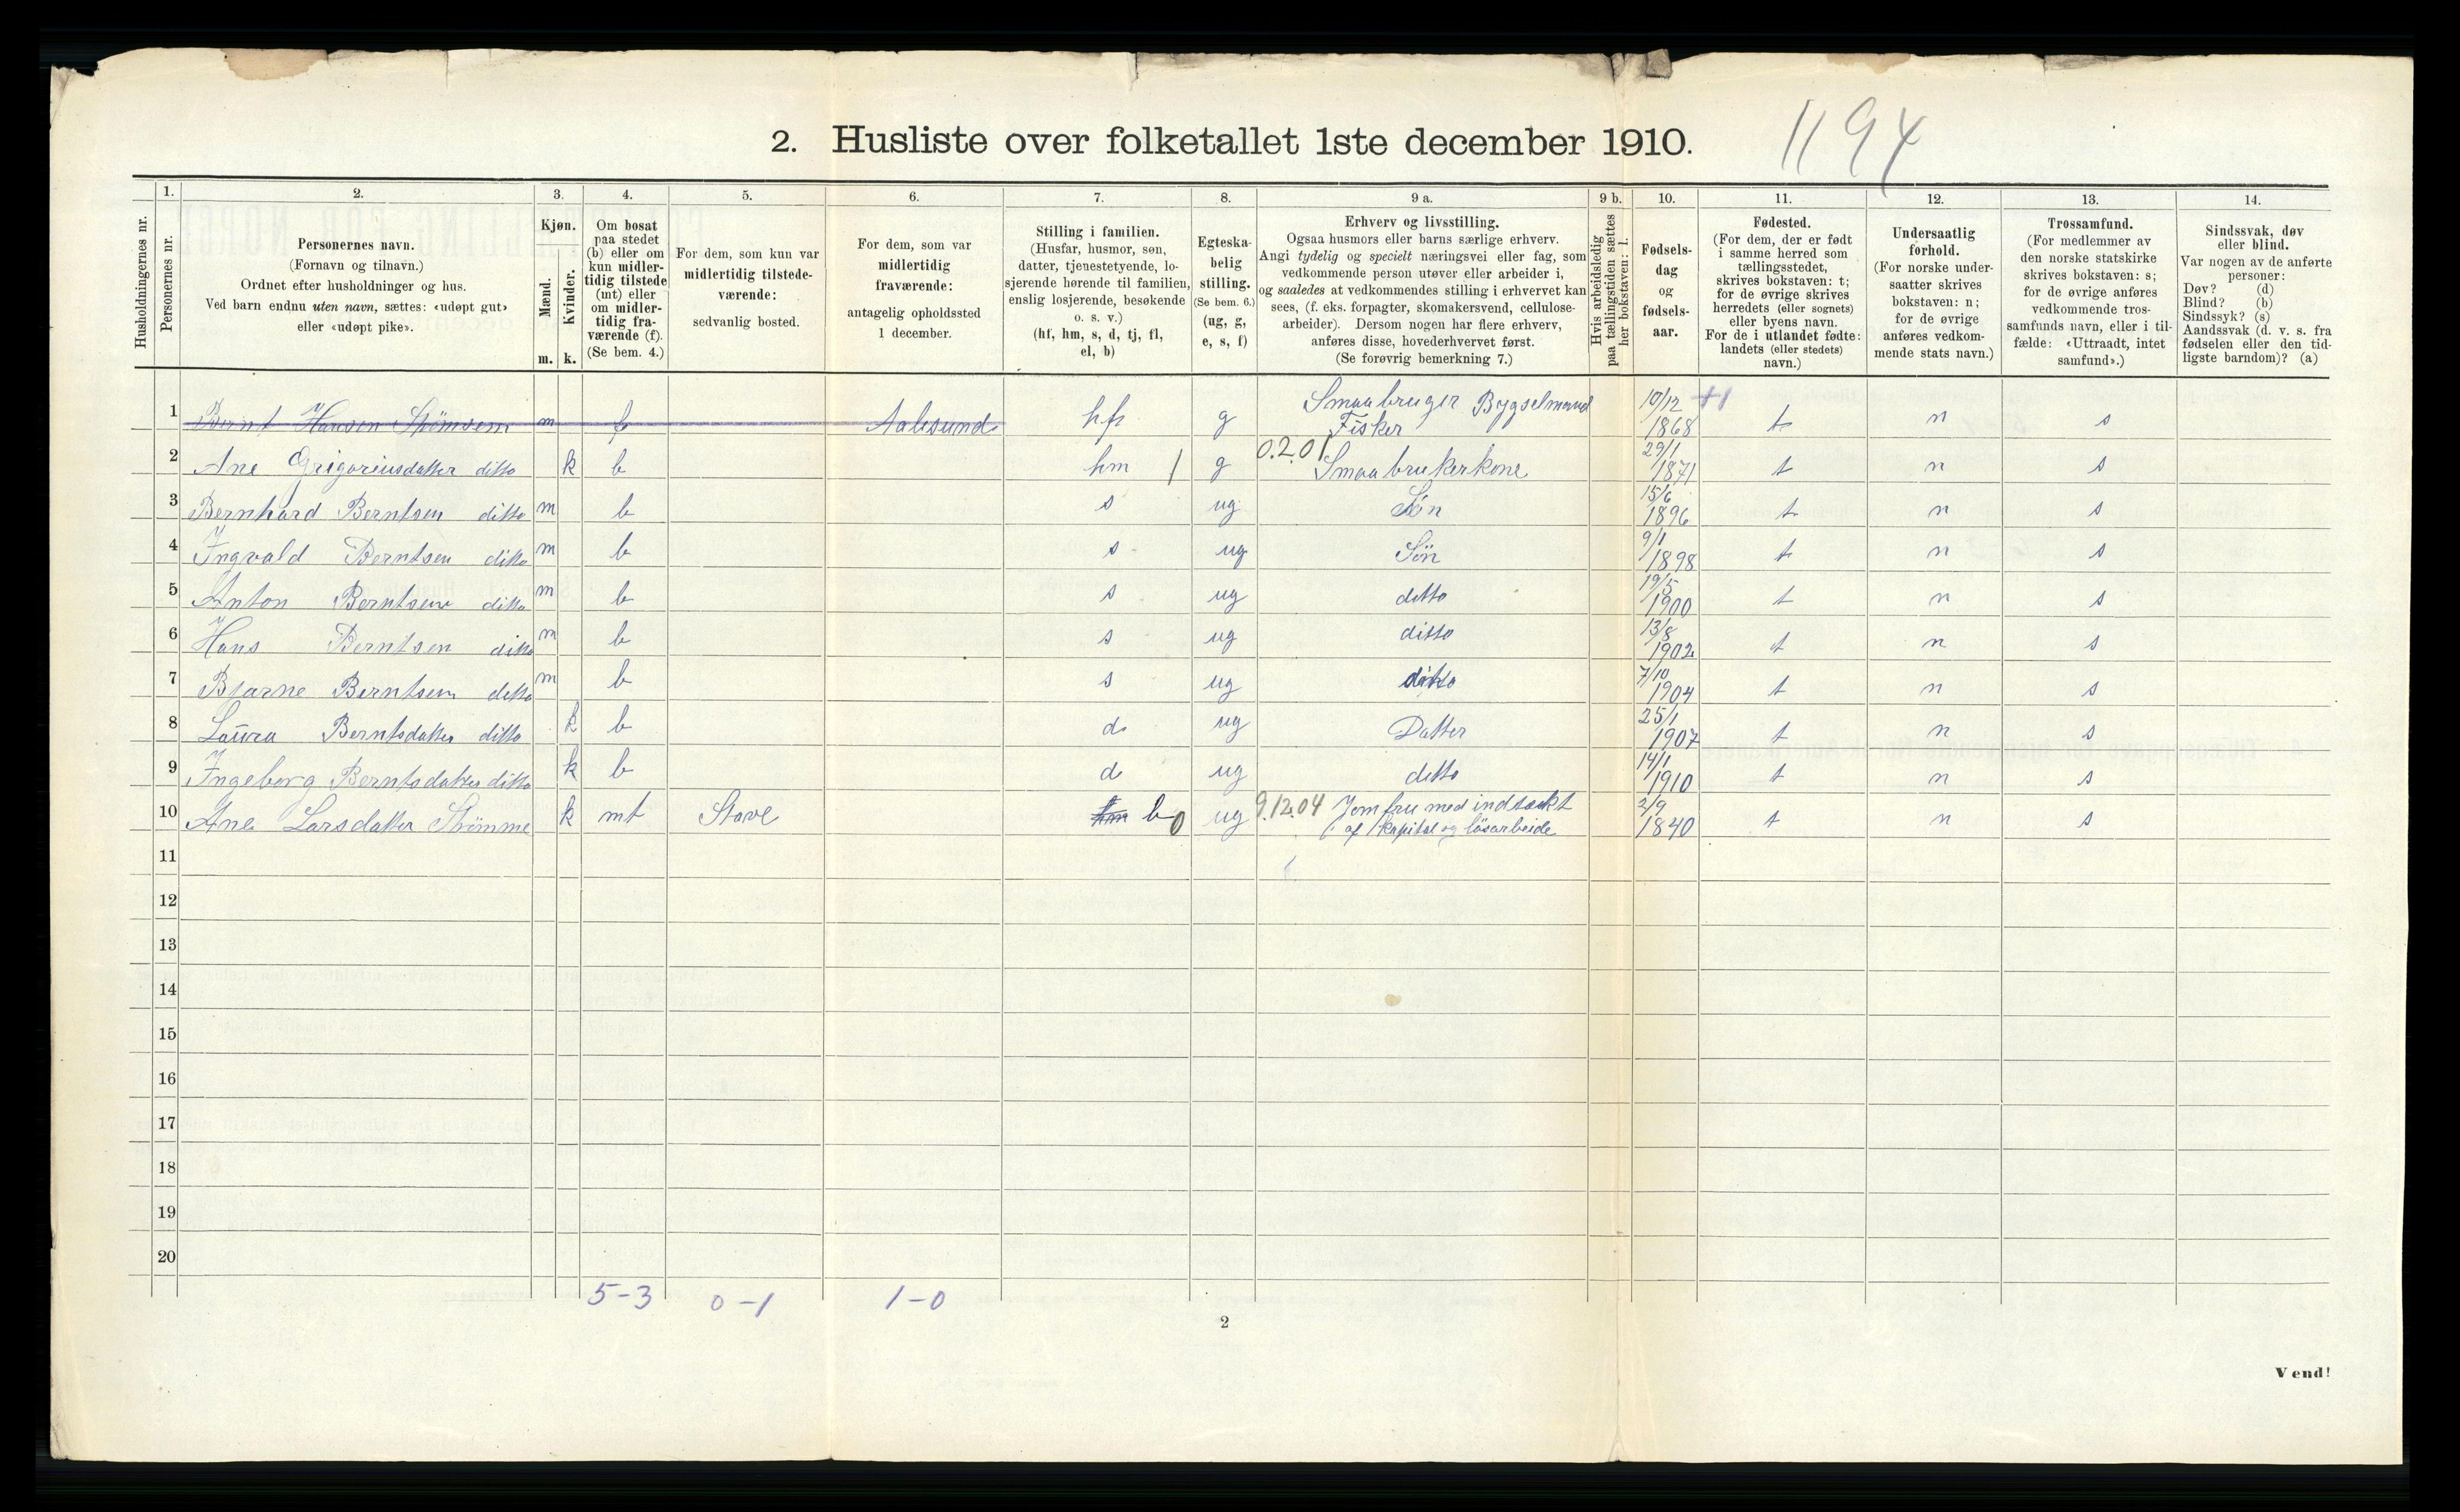 1194
2. Husliste over folketallet 1ste december 1910.
Husholdningernes nr.
1.
Personernes nr.
2.
Personernes navn.
(Fornavn og tilnavn.)
Ordnet efter husholdninger og hus.
Ved barn endnu uten navn, sættes: «udøpt gut»
eller «udøpt pike».
3.
Kjøn.
Mænd.
Kvinder.
m. k.
4.
Om bosat
paa stedet
(b) eller om
kun midler-
tidig tilstede
(mt) eller
om midler-
tidig fra-
værende (f).
(Se bem. 4.)
5.
For dem, som kun var
midlertidig tilstede-
værende:
sedvanlig bosted.
6.
For dem, som var
midlertidig
fraværende:
antagelig opholdssted
1 december.
7.
Stilling i familien.
(Husfar, husmor, søn,
datter, tjenestetyende, lo-
sjerende hørende til familien,
enslig losjerende, besøkende
o. s. v.)
(hf, hm, s, d, tj, fl,
el, b)
8.
Egteska-
belig
stilling.
(Se bem. 6.)
(ug, g,
e, s, f)
9 a.
Erhverv og livsstilling.
Ogsaa husmors eller barns særlige erhverv.
Angi tydelig og specielt næringsvei eller fag, som
vedkommende person utøver eller arbeider i,
og saaledes at vedkommendes stilling i erhvervet kan
sees, (f. eks. forpagter, skomakersvend, cellulose-
arbeider). Dersom nogen har flere erhverv,
anføres disse, hovederhvervet først.
(Se forøvrig bemerkning 7.)
9 b.
Hvis arbeidsledig
paa tællingstiden sættes
her bokstaven: l.
10.
Fødsels-
dag
og
fødsels-
aar.
11.
Fødested.
(For dem, der er født
i samme herred som
tællingsstedet,
skrives bokstaven: t;
for de øvrige skrives
herredets (eller sognets)
eller byens navn.
For de i utlandet fødte:
landets (eller stedets)
navn.)
12.
Undersaatlig
forhold.
(For norske under-
saatter skrives
bokstaven: n;
for de øvrige
anføres vedkom-
mende stats navn.)
13.
Trossamfund.
(For medlemmer av
den norske statskirke
skrives bokstaven: s;
for de øvrige anføres
vedkommende tros-
samfunds navn, eller i til-
fælde: «Uttraadt, intet
samfund».)
14.
Sindssvak, døv
eller blind.
Var nogen av de anførte
personer:
Døv? (d)
Blind? (b)
Sindssyk? (s)
Aandssvak (d. v. s. fra
fødselen eller den tid-
ligste barndom)? (a)
1 Bernt Hansen m f Aalesund hf g Smaabruger Bygselmand Fisker 10/12 1868 t n s
2 Ane Grigoriusdatter ditto k b hm 1 g 0.2.01 Smaabrukerkone 29/1 1871 t n s
3 Bernhard Berntsen ditto m b s ug Søn 15/6 1896 t n s
4 Ingvald Berntsen ditto m b s ug Søn 9/1 1898 t n s
5 Anton Berntsen ditto m b s ug ditto 19/5 1900 t n s
6 Hans Berntsen ditto m b s ug ditto 13/8 1902 t n s
7 Bjarne Berntsen ditto m b s ug ditto 7/10 1904 t n s
8 Laura Berntsdatter ditto k b d ug Datter 25/1 1907 t n s
9 Ingeborg Berntsdatter ditto k b d ug ditto 14/1 1910 t n s
10 Ane Larsdatter Strømme k mt Stave b 0 ug 9.12.04 Jomfru med indtækt af kapital og løsarbeide 2/9 1840 t n s
11
12
13
14
15
16
17
18
19
20
5-3 0-1 1-0
2
Vend!